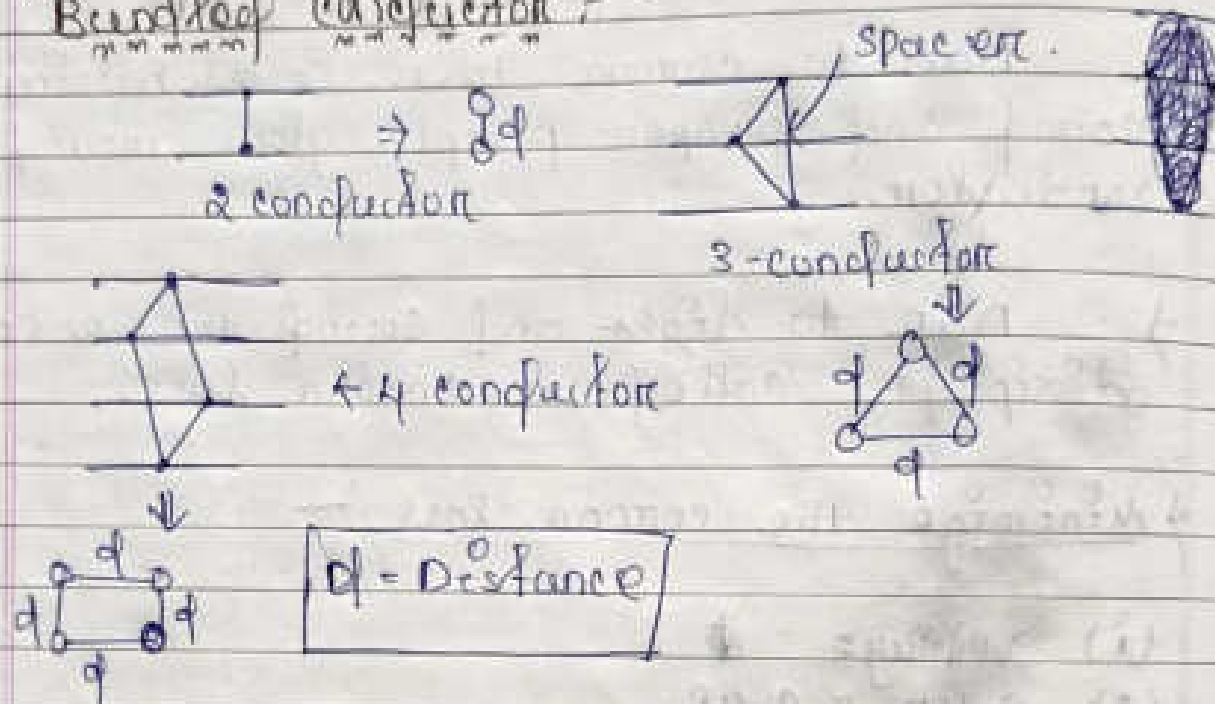 Bundled Conductor :
Spacer.
⇒ d
2 conductor
3-conductor
⇓
← 4 conductor
d d
d
⇓
d
d d
d
d - Distance